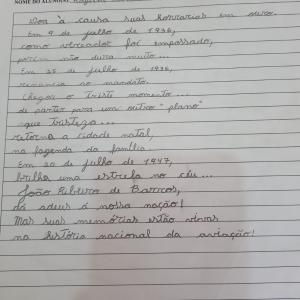 NOME DO ALUNO(A)
Doa à causa suas honrarias em ouro.
Em 9 de julho de 1936,
como vereador foi empossado,
porém não dura muito...
Em 25 de julho de 1936,
renuncia ao mandato.
Chegou o triste momento...
de partir para um outro "plano"
que tristeza...
retorna a cidade natal,
na fazenda da família.
Em 20 de julho de 1947,
brilha uma estrela no céu...
João Ribeiro de Barros,
dá adeus à nossa nação!
Mas suas memórias estão vivas
na história nacional da aviação!